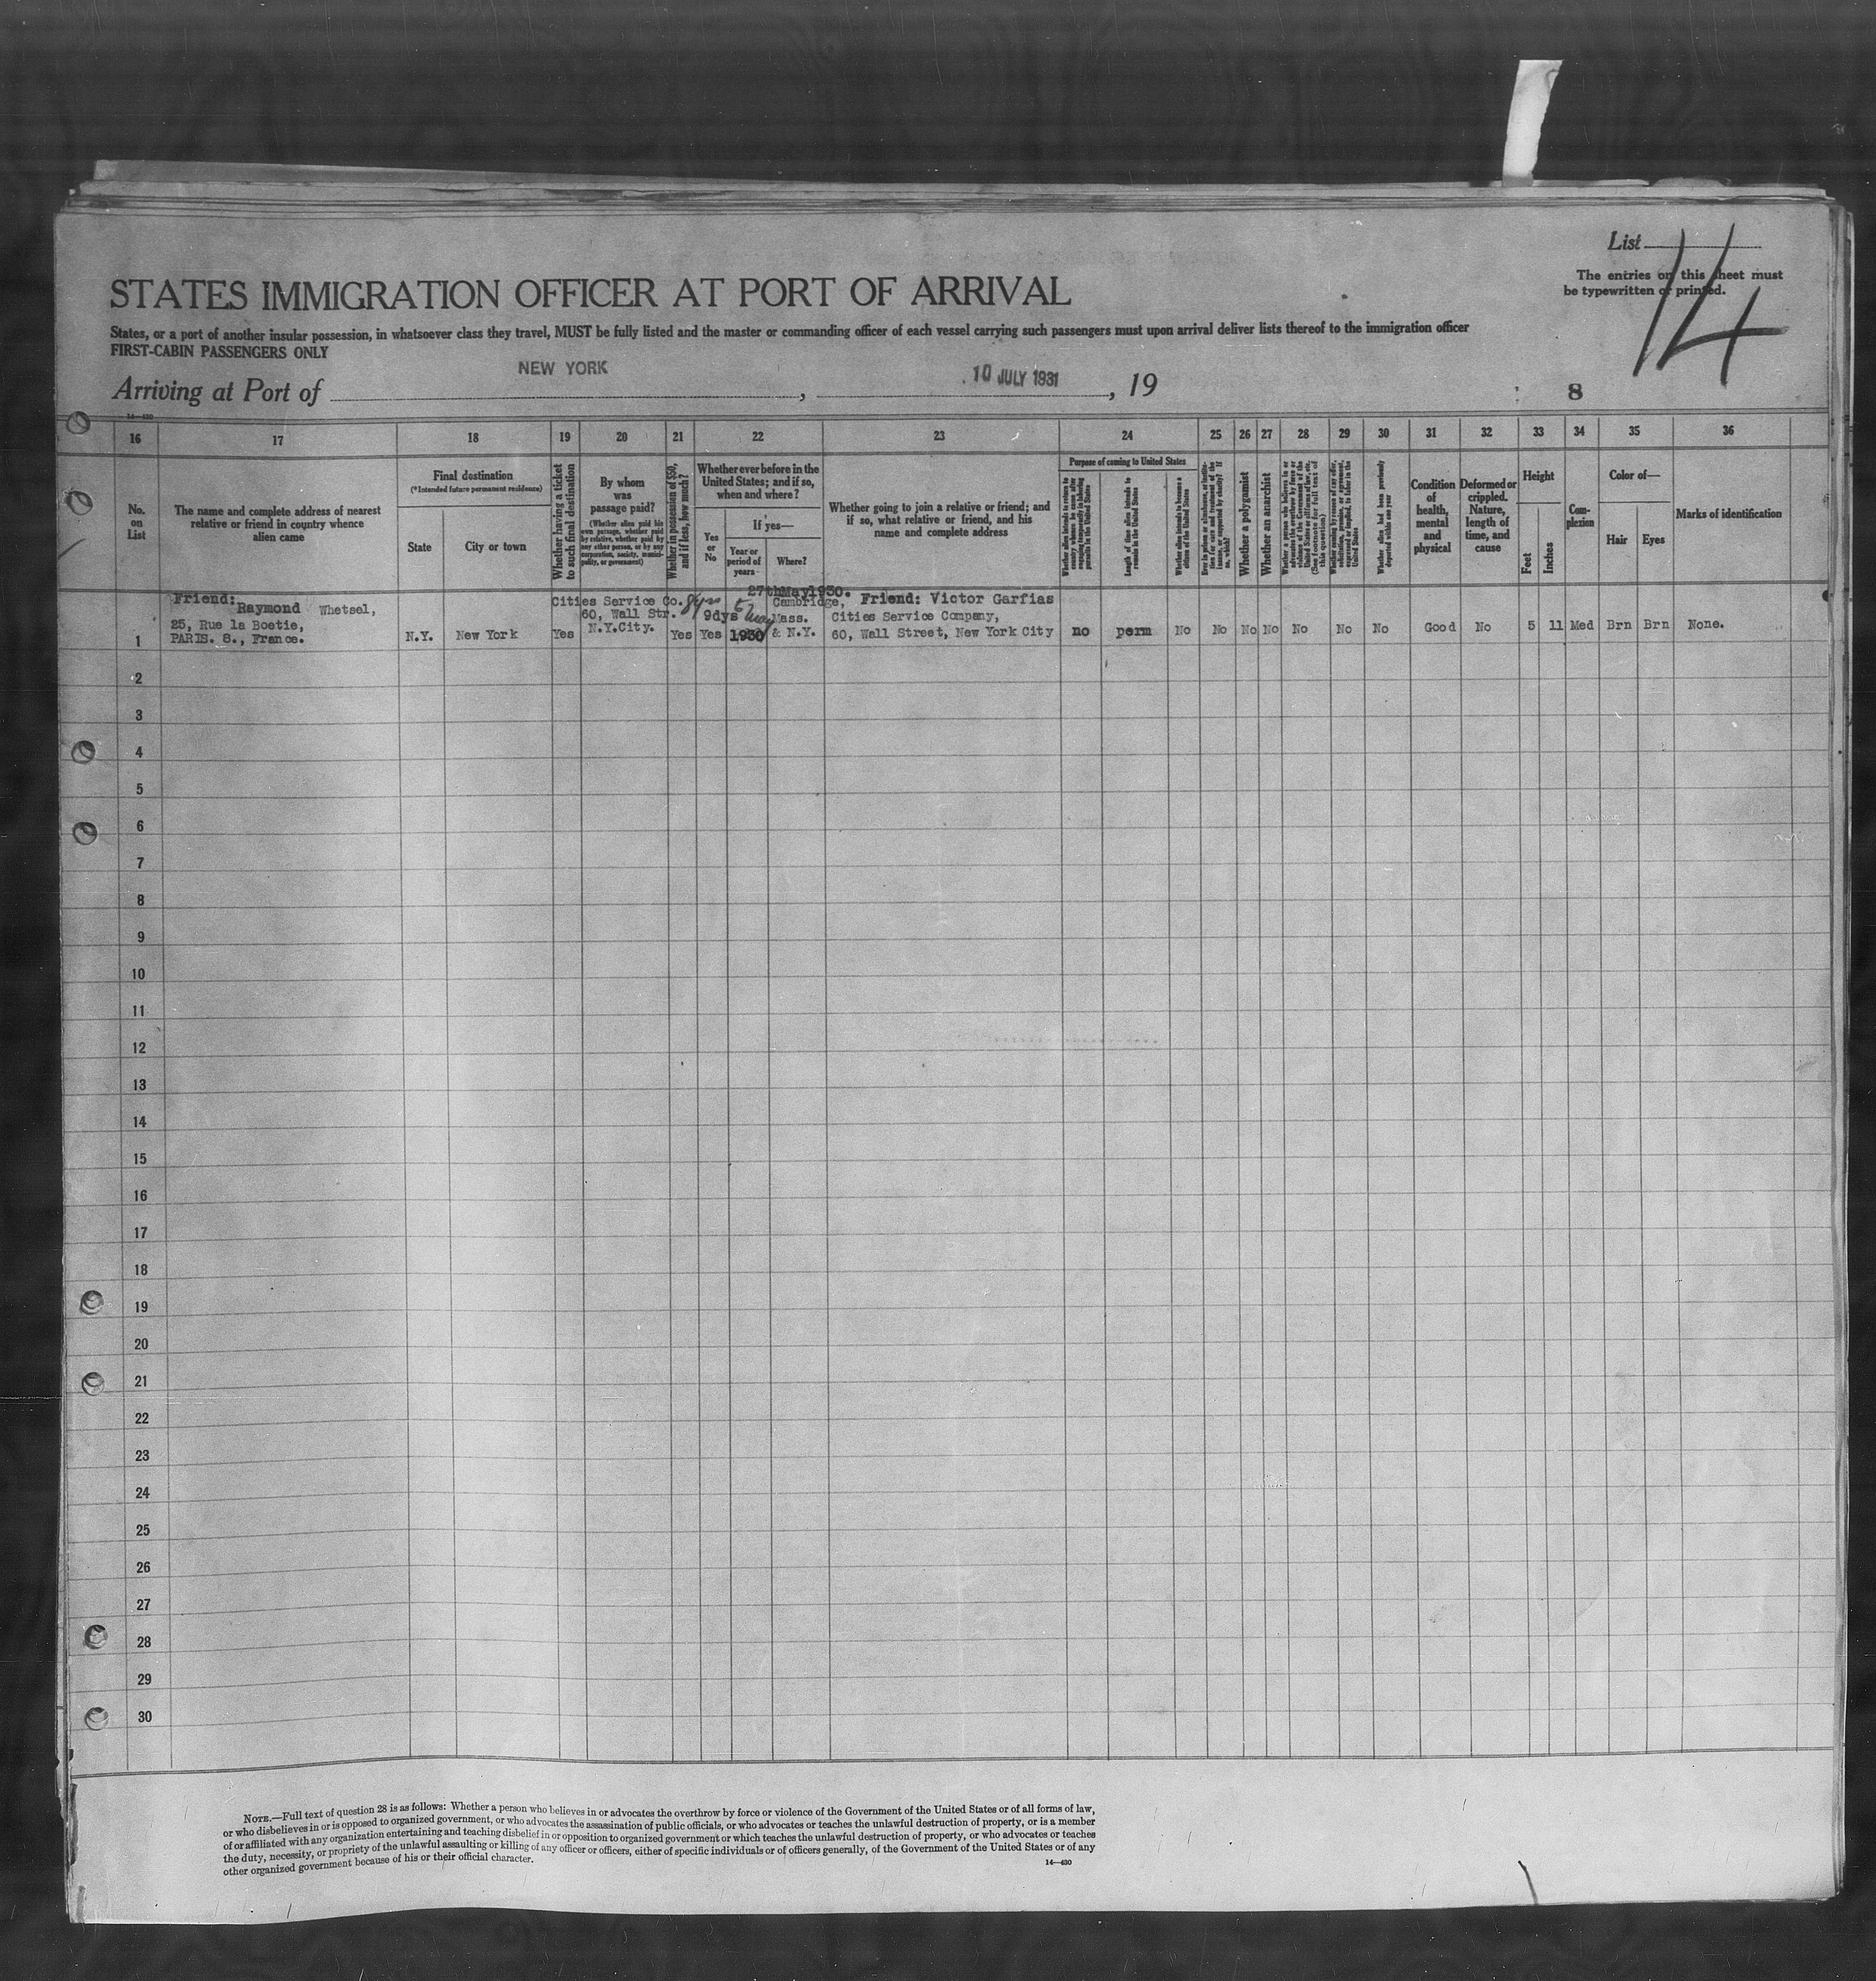 List
14
The entries on this sheet must
be typewritten or printed.
STATES IMMIGRATION OFFICER AT PORT OF ARRIVAL
States, or a port of another insular possession, in whatsoever class they travel, MUST be fully listed and the master or commanding officer of each vessel carrying such passengers must upon arrival deliver lists thereof to the immigration officer
FIRST-CABIN PASSENGERS ONLY
Arriving at Port of NEW YORK, 10 JULY 1931, 19
8
14—430
16 17 18 19 20 21 22 23 24 25 26 27 28 29 30 31 32 33 34 35 36
No.
on
List
The name and complete address of nearest
relative or friend in country whence
alien came
Final destination
(*Intended future permanent residence)
State
City or town
Whether having a ticket
to such final destination
By whom
was
passage paid?
(Whether alien paid his
own passage, whether paid
by relative, whether paid by
any other person, or by any
corporation, society, munici-
pality, or government)
Whether in possession of $50,
and if less, how much?
Whether ever before in the
United States; and if so,
when and where?
Yes
or
No
If yes—
Year or
period of
years
Where?
Whether going to join a relative or friend; and
if so, what relative or friend, and his
name and complete address
Purpose of coming to United States
Whether alien intends to return to
country whence he came after
engaging temporarily in laboring
pursuits in the United States
Length of time alien intends to
remain in the United States
Whether alien intends to become a
citizen of the United States
Ever in prison or almshouse, or institu-
tion for care and treatment of the
insane, or supported by charity? If
so, which?
Whether a polygamist
Whether an anarchist
Whether a person who believes in or
advocates the overthrow by force or
violence of the Government of the
United States or all forms of law, etc.
(See footnote for full text of
this question)
Whether coming by reason of any offer,
solicitation, promise, or agreement,
expressed or implied, to labor in the
United States
Whether alien had been previously
deported within one year
Condition
of
health,
mental
and
physical
Deformed or
crippled.
Nature,
length of
time, and
cause
Height
Feet
Inches
Com-
plexion
Color of—
Hair
Eyes
Marks of identification
Friend:
Raymond Whetsel,
25, Rue la Boetie,
PARIS. 8., France.
N.Y.
New York
Yes
Cities Service Co.
60, Wall Str.
N.Y.City.
Yes
9dys
Yes
27thMay1930.
1930
Cambridge,
Mass.
& N.Y.
Friend: Victor Garfias
Cities Service Company,
60, Wall Street, New York City
no perm No No No No No No No Good No 5 11 Med Brn Brn None.
1
2
3
4
5
6
7
8
9
10
11
12
13
14
15
16
17
18
19
20
21
22
23
24
25
26
27
28
29
30
NOTE.—Full text of question 28 is as follows: Whether a person who believes in or advocates the overthrow by force or violence of the Government of the United States or of all forms of law,
or who disbelieves in or is opposed to organized government, or who advocates the assassination of public officials, or who advocates or teaches the unlawful destruction of property, or is a member
of or affiliated with any organization entertaining and teaching disbelief in or opposition to organized government or which teaches the unlawful destruction of property, or who advocates or teaches
the duty, necessity, or propriety of the unlawful assaulting or killing of any officer or officers, either of specific individuals or of officers generally, of the Government of the United States or of any
other organized government because of his or their official character.
14—430